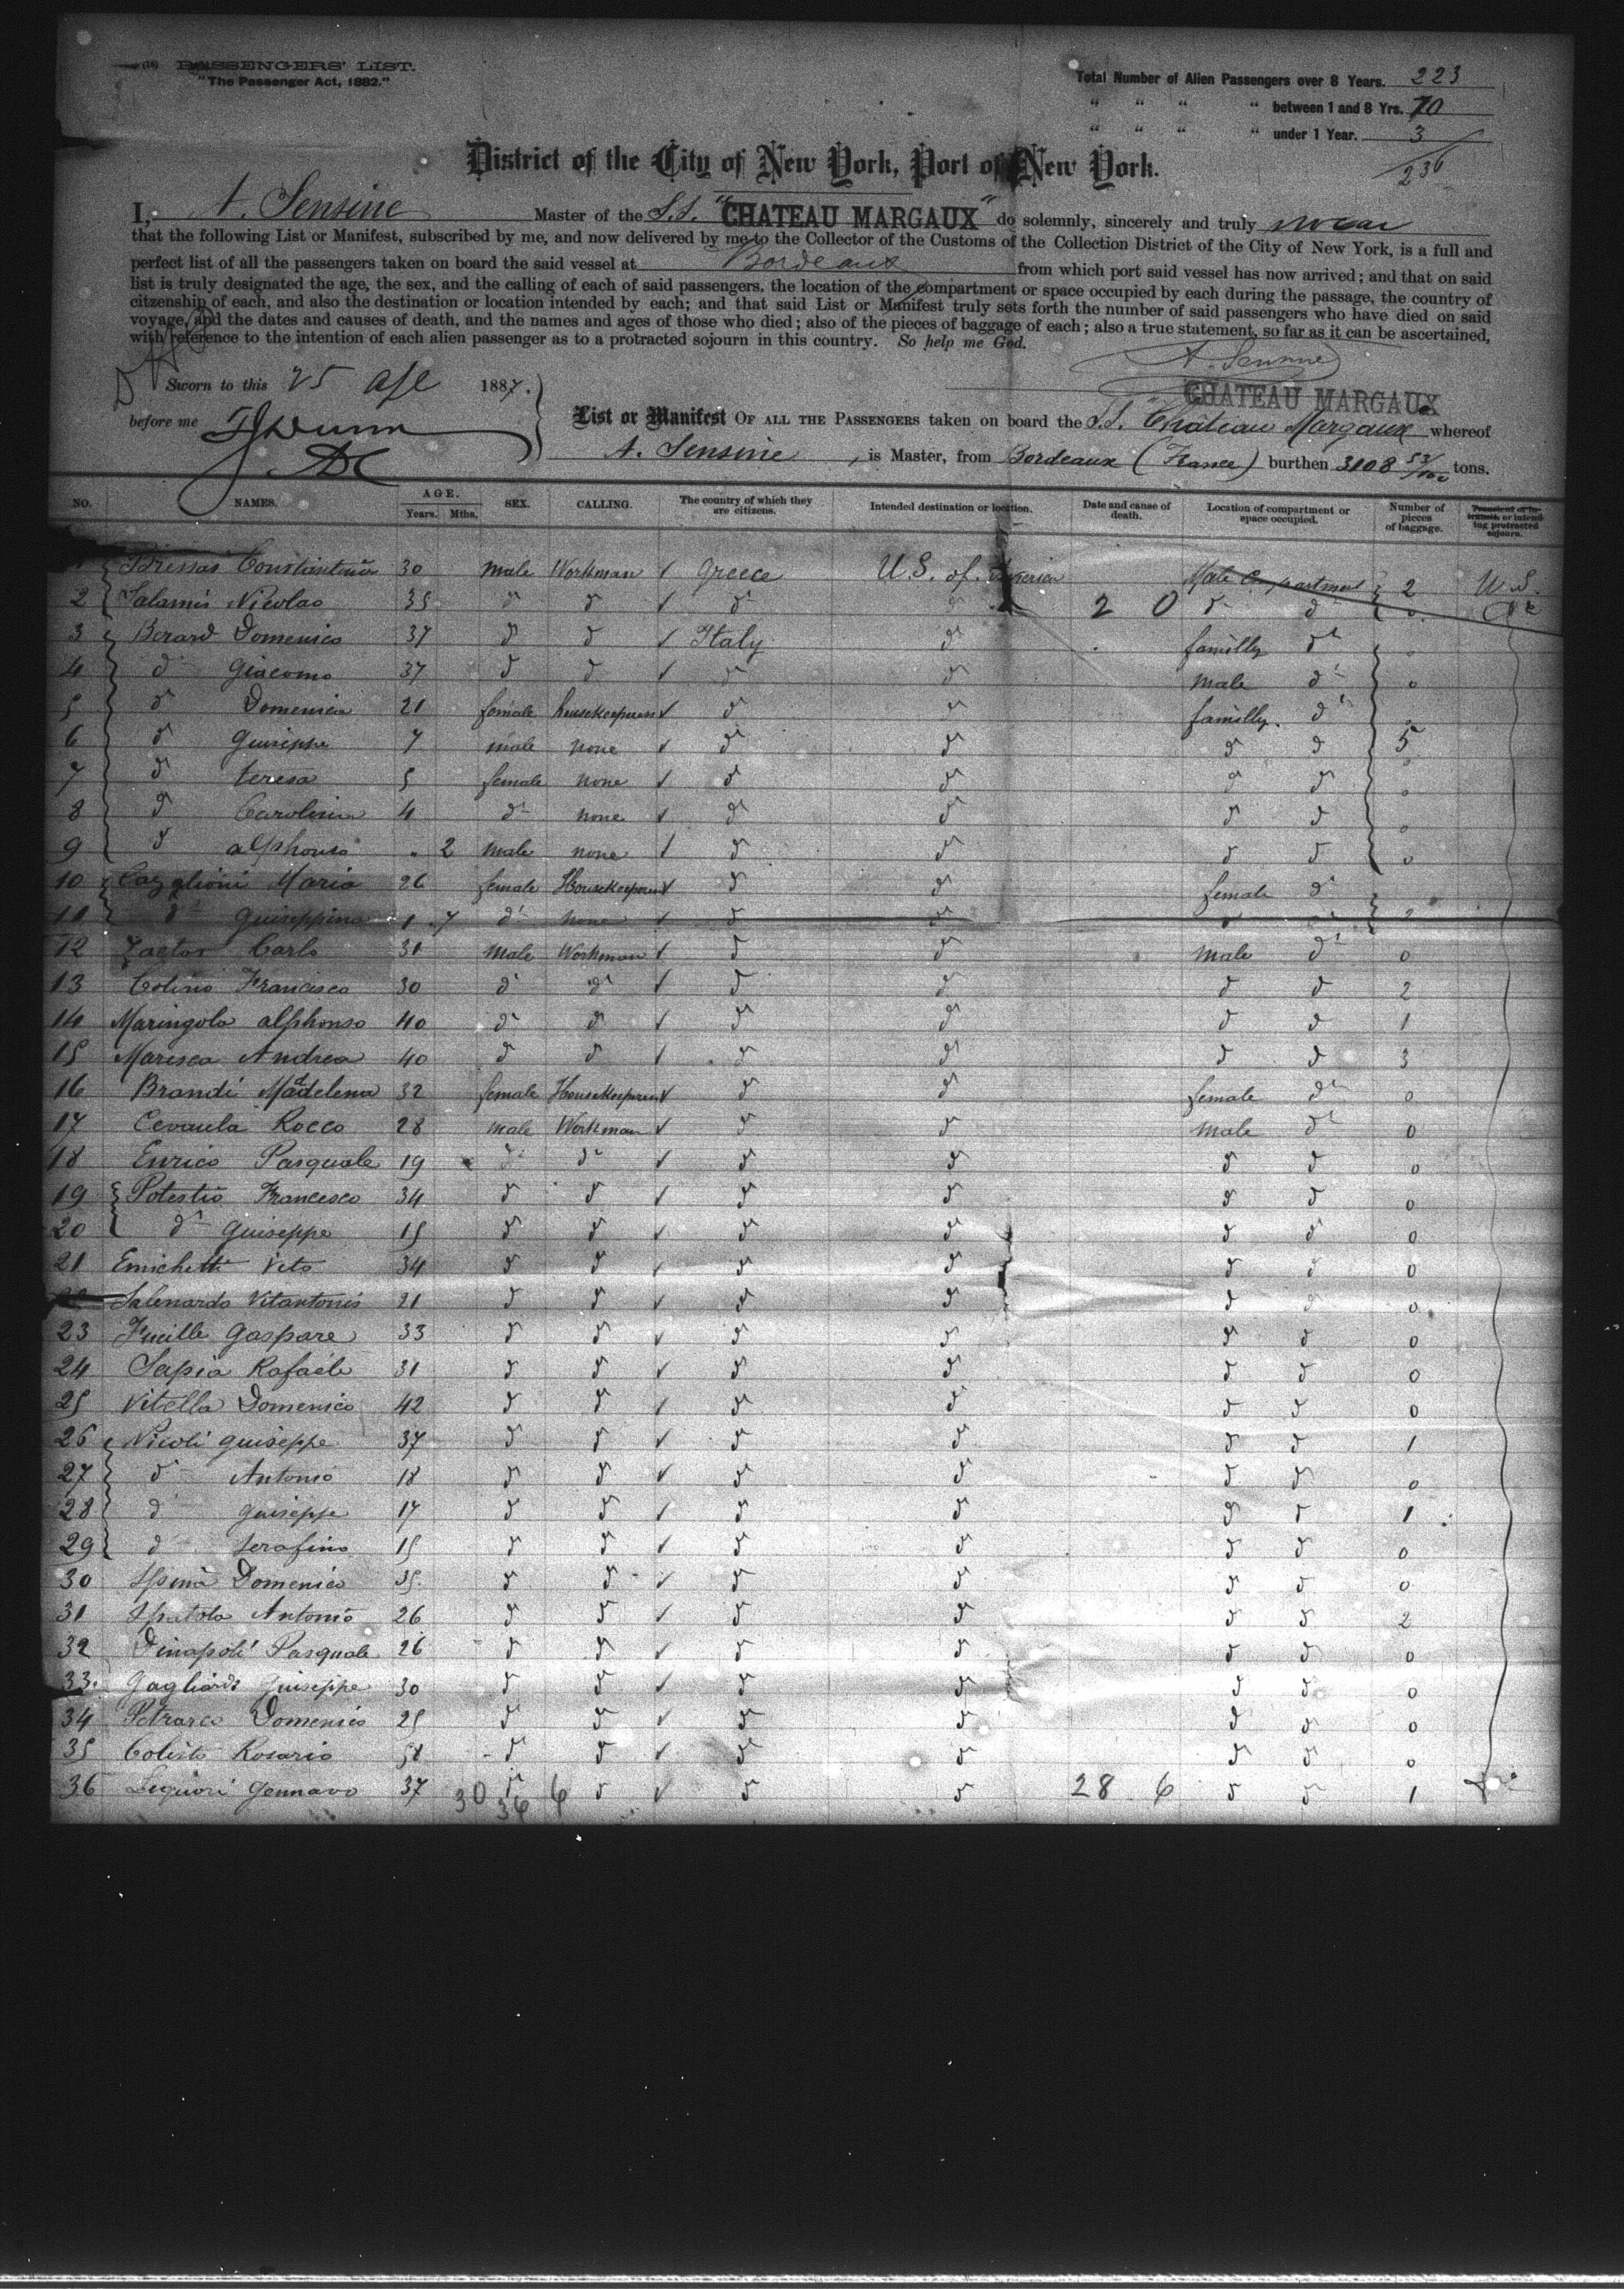 (18) PASSENGERS' LIST.
"The Passenger Act, 1882."
Total Number of Alien Passengers over 8 Years. 223
" " " " between 1 and 8 Yrs. 10
" " " " under 1 Year. 3
236
District of the City of New York, Port of New York.
I, A. Sensine Master of the S.S. "CHATEAU MARGAUX" do solemnly, sincerely and truly swear
that the following List or Manifest, subscribed by me, and now delivered by me to the Collector of the Customs of the Collection District of the City of New York, is a full and
perfect list of all the passengers taken on board the said vessel at Bordeaux from which port said vessel has now arrived; and that on said
list is truly designated the age, the sex, and the calling of each of said passengers, the location of the compartment or space occupied by each during the passage, the country of
citzenship of each, and also the destination or location intended by each; and that said List or Manifest truly sets forth the number of said passengers who have died on said
voyage, and the dates and causes of death, and the names and ages of those who died; also of the pieces of baggage of each; also a true statement, so far as it can be ascertained,
with reference to the intention of each alien passenger as to a protracted sojourn in this country. So help me God.
A. Sensine
Sworn to this 25 Apl 1887.
CHATEAU MARGAUX
before me
List or Manifest OF ALL THE PASSENGERS taken on board the S.S. Château Margaux whereof
A. Sensine, is Master, from Bordeaux (France) burthen 3108 53/100 tons.
NO. NAMES. AGE. Years. Mths. SEX. CALLING. The country of which they are citizens. Intended destination or location. Date and cause of death. Location of compartment or space occupied. Number of pieces of baggage. Transient or in transit, or intending protracted sojourn.
1 Bressas Constantino 30 male Workman Greece U.S. of America Male Compartment 2 U.S.
2 Salamis Nicolas 35 d d d d 2 0 d d
3 Berard Domenico 37 d d Italy d familly d
4 d Giacomo 37 d d d d male d
5 d Domenica 21 female housekeeperess d d familly d
6 d Guiseppe 7 male none d d d d 5
7 d teresa 5 female none d d d d
8 d Carolina 4 d none d d d d
9 d alphonso 2 male none d d d d
10 Maria 26 female Housekeeperess d d female d
11 d Guiseppina 1 7 d none d d d d 2
12 Carlo 31 male Workman d d male d 0
13 Colino Francisco 30 d d d d d d 2
14 Maringolo alphonso 40 d d d d d d 1
15 Marisca Andrea 40 d d d d d d 3
16 Brandi Madelena 32 female Housekeeperess d d female d 0
17 Rocco 28 male Workman d d male d 0
18 Enrico Pasquale 19 d d d d d d 0
19 Potestio Francesco 34 d d d d d d 0
20 d Guiseppe 15 d d d d d d 0
21 Emichetti Vito 34 d d d d d d 0
22 Salenardo Vitantonio 21 d d d d d d 0
23 Fucille Gaspare 33 d d d d d d 0
24 Sapia Rafaele 31 d d d d d d 0
25 Vitella Domenico 42 d d d d d d 0
26 Nicoli Guiseppe 37 d d d d d d 1
27 d Antonio 18 d d d d d d 0
28 d Guiseppe 17 d d d d d d 1
29 d Serafino 15 d d d d d d 0
30 Spina Domenico 35 d d d d d d 0
31 Spatola Antonio 26 d d d d d d 2
32 Dinapoli Pasquale 26 d d d d d d 0
33. Gagliardi Guiseppe 30 d d d d d d 0
34 Petrarca Domenico 25 d d d d d d 0
35 Colisto Rosario 58 d d d d d d 0
36 Liquori Gennaro 37 d d d d 28 6 d d 1
30 36 6